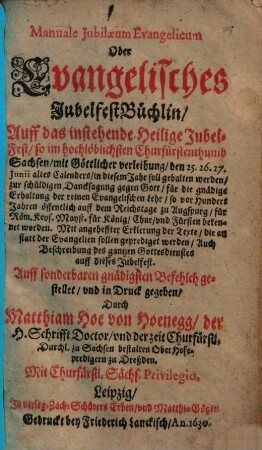 Manuale Jubilæum Evangelicum
Oder
Evangelisches
JubelfestBüchlin/
Auff das instehende Heilige Jubel-
Fest/ so im hochlöblichsten Churfürstenthumb
Sachsen/ mit Göttlicher verleihung/ den 25. 26. 27.
Junii altes Calenders/ in diesem Jahr soll gehalten werden/
zur schüldigen Dancksagung gegen Gott/ für die gnädige
Erhaltung der reinen Evangelischen lehr/ so vor hundert
Jahren öffentlich auff dem Reichstage zu Augspurg/ für
Röm. Keys. Mayst. für König/ Chur/ und Fürsten beken-
net worden. Mit angeheffter Erklerung der Texte/ die an
statt der Evangelien sollen geprediget werden/ Auch
Beschreibung des gantzen Gottesdienstes
auff dieses Jubelfest.
Auff sonderbaren gnädigsten Befehlich ge-
stellet/ vnd in Druck gegeben/
Durch
Matthiam Hoe von Hoenegg/ der
H. Schrifft Doctor/ vnd der zeit Churfürstl.
Durchl. zu Sachsen bestalten Ober Hofe-
predigern zu Dreßden.
Mit Churfürstl. Sächs. Privilegio.
Leipzig/
In verleg. Zach: Schürers Erben/ vnd Matthiæ Götzen
Gedruckt bey Friederich Lanckisch/ An. 1630.